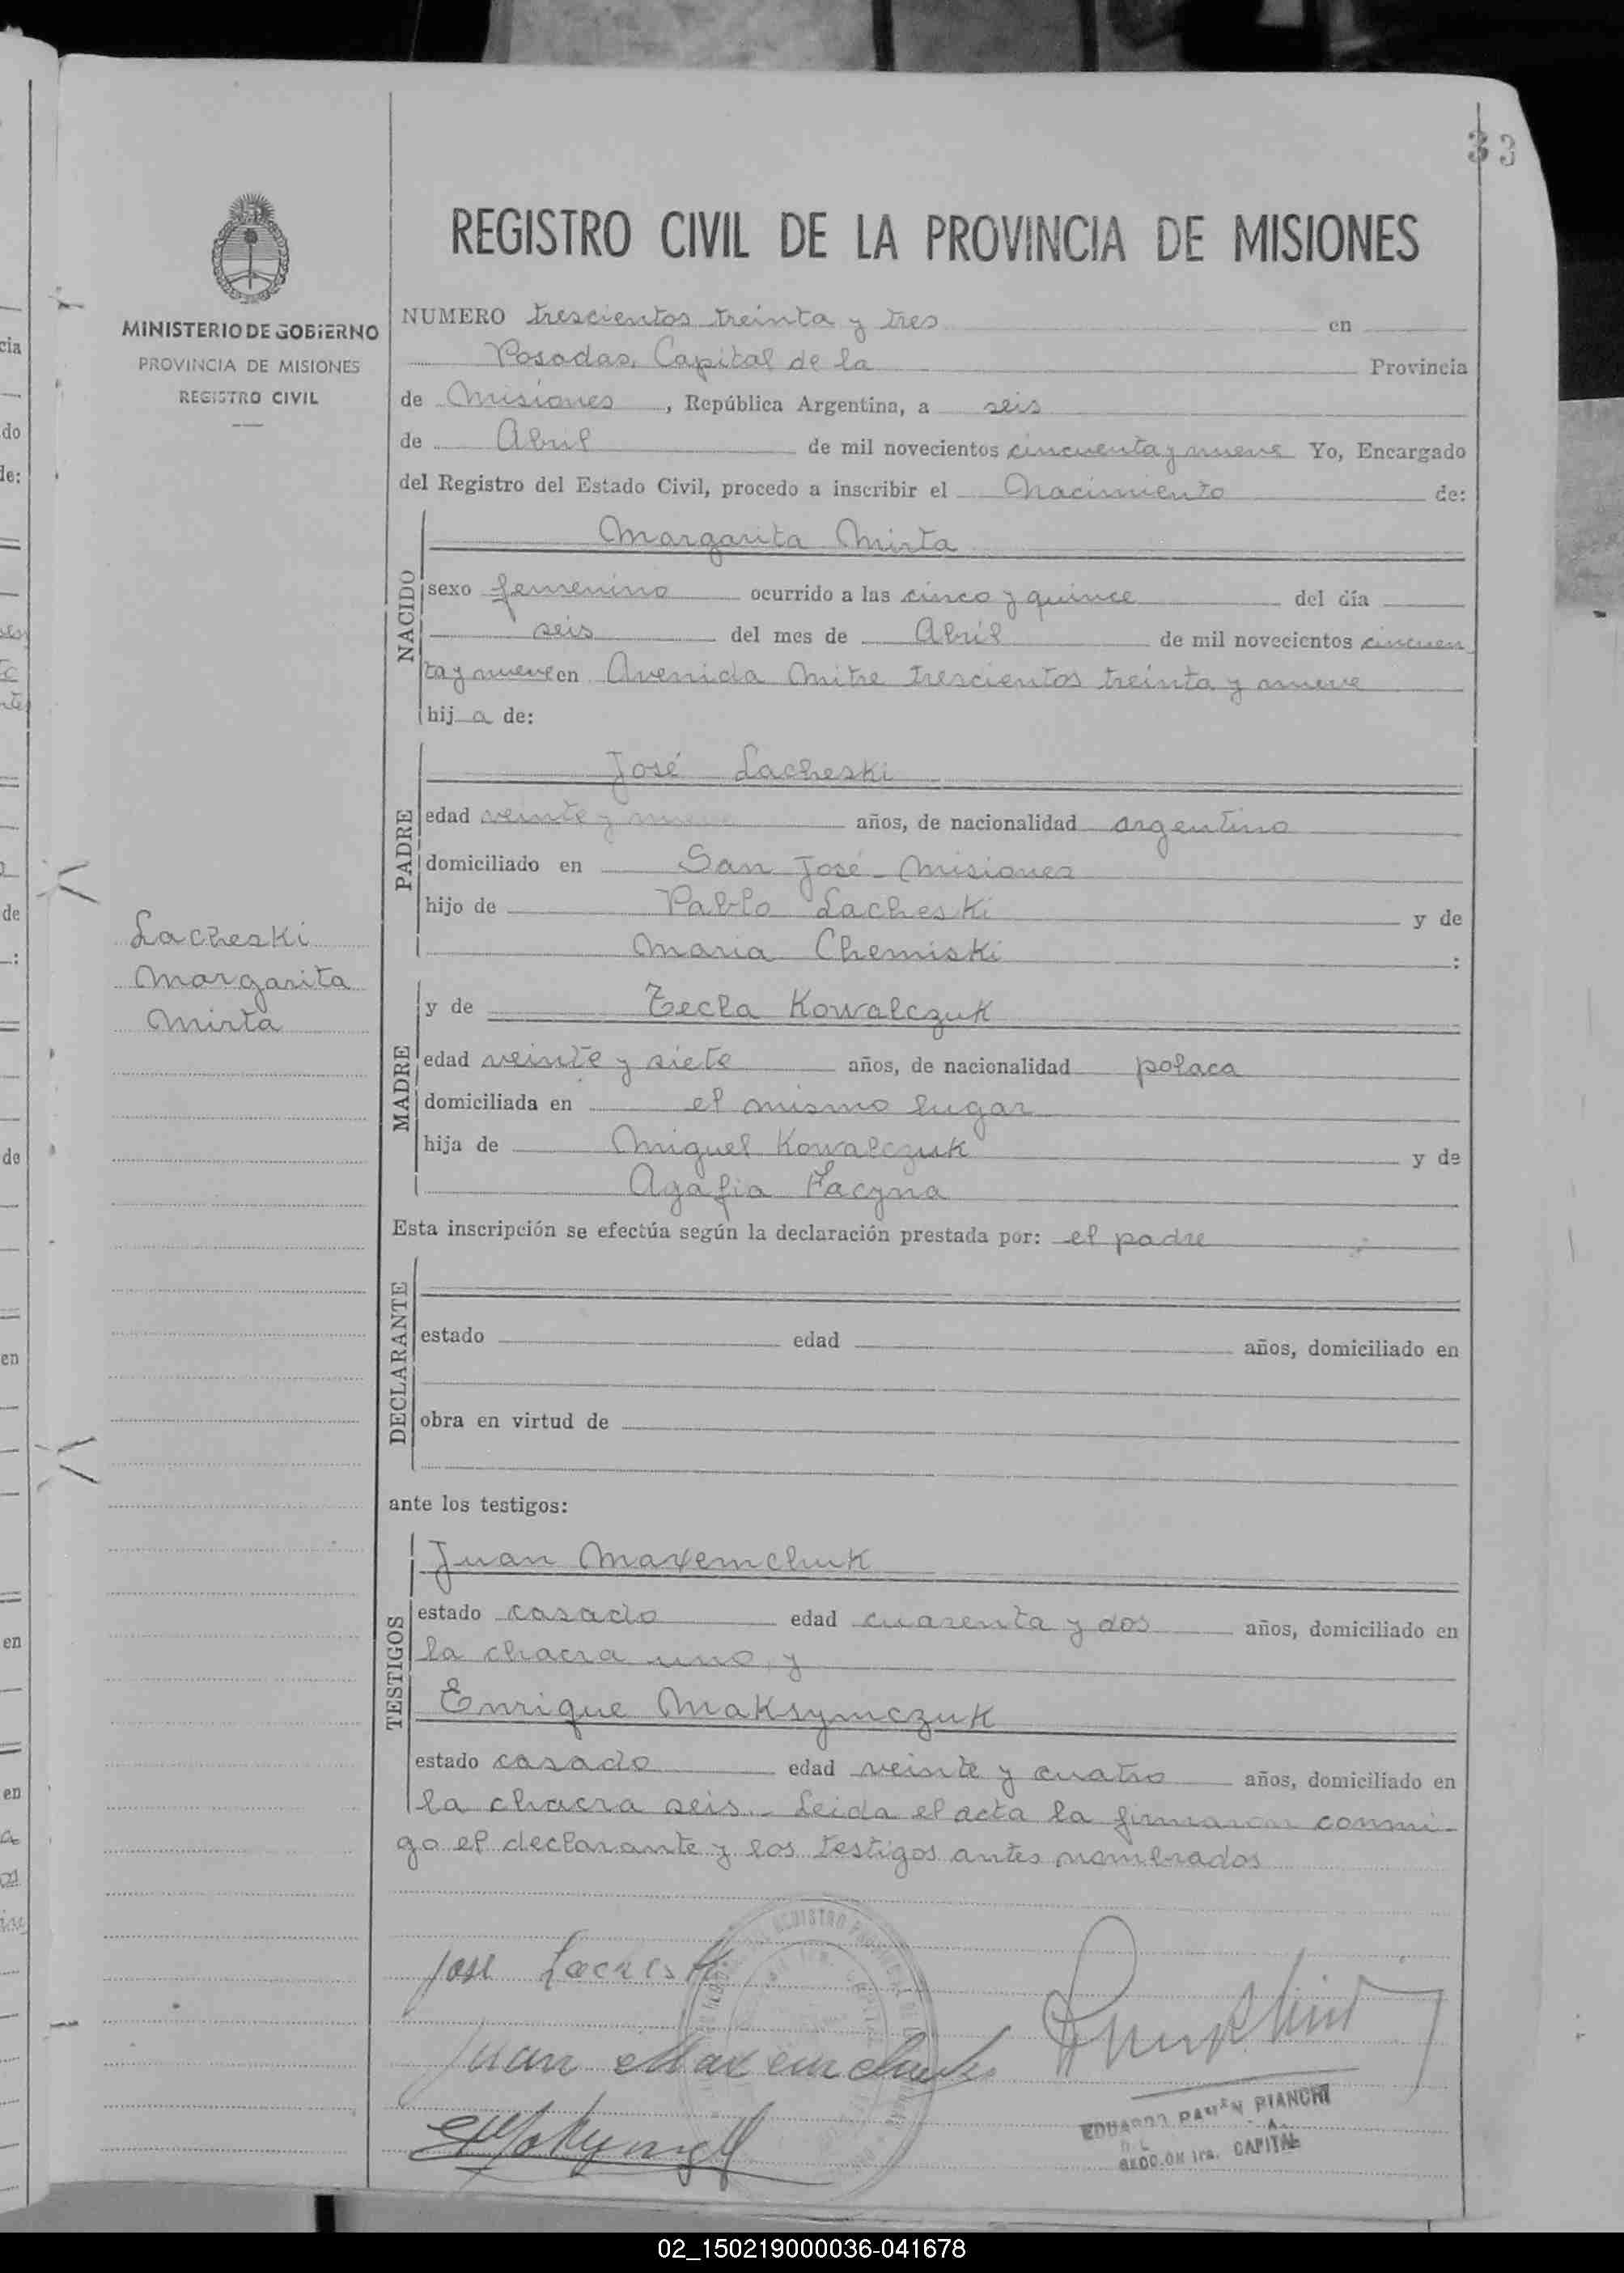 33
REGISTRO CIVIL DE LA PROVINCIA DE MISIONES
MINISTERIO DE GOBIERNO
PROVINCIA DE MISIONES
REGISTRO CIVIL
Lacheski
Margarita
Mirta
NUMERO trescientos treinta y tres en
Posadas, Capital de la Provincia
de Misiones, República Argentina, a seis
de Abril de mil novecientos cincuenta y nueve Yo, Encargado
del Registro del Estado Civil, procedo a inscribir el Nacimiento de:
NACIDO
Margarita Mirta
sexo femenino ocurrido a las cinco y quince del día
seis del mes de Abril de mil novecientos cincuen
ta y nueve en Avenida Mitre trescientos treinta y nueve
hija de:
PADRE
José Lacheski
edad veinte y nueve años, de nacionalidad argentino
domiciliado en San José - Misiones
hijo de Pablo Lacheski y de
Maria Chemiski :
MADRE
y de Tecla Kowalczuk
edad veinte y siete años, de nacionalidad polaca
domiciliada en el mismo lugar
hija de Miguel Kowalczuk y de
Agafia Facyna
Esta inscripción se efectúa según la declaración prestada por: el padre
DECLARANTE
estado edad años, domiciliado en
obra en virtud de
ante los testigos:
TESTIGOS
Juan Maxemchuk
estado casado edad cuarenta y dos años, domiciliado en
la chacra uno, y
Enrique Maksymczuk
estado casado edad veinte y cuatro años, domiciliado en
la chacra seis. - Leida el acta la firmaron conmi-
go el declarante y los testigos antes nombrados
José Lacheski
Juan Maxemchuk
EDUARDO RAMÓN BIANCHI
SECCION 1ra. CAPITAL
02_150219000036-041678